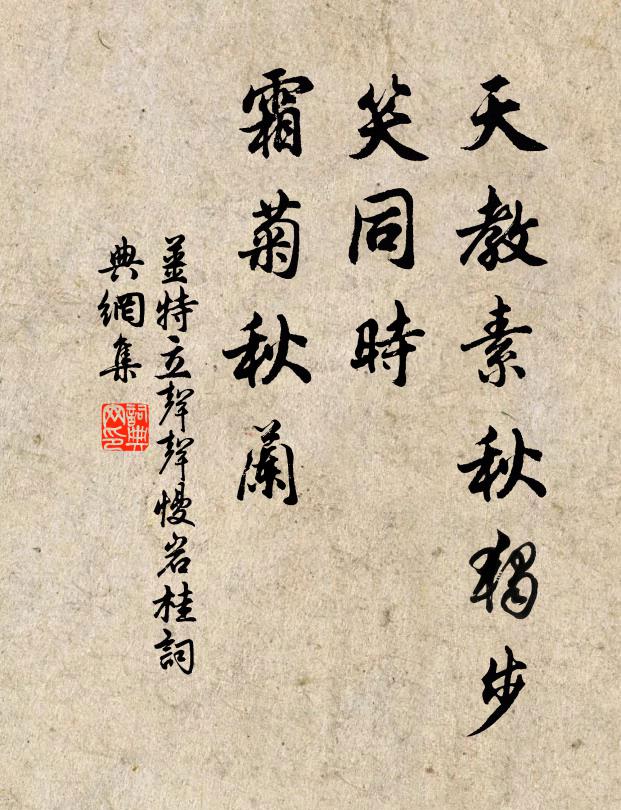 天教素秋獨步
笑同時
霜菊秋蘭
姜特立聲聲慢岩桂詞
典網集
詞典
网印